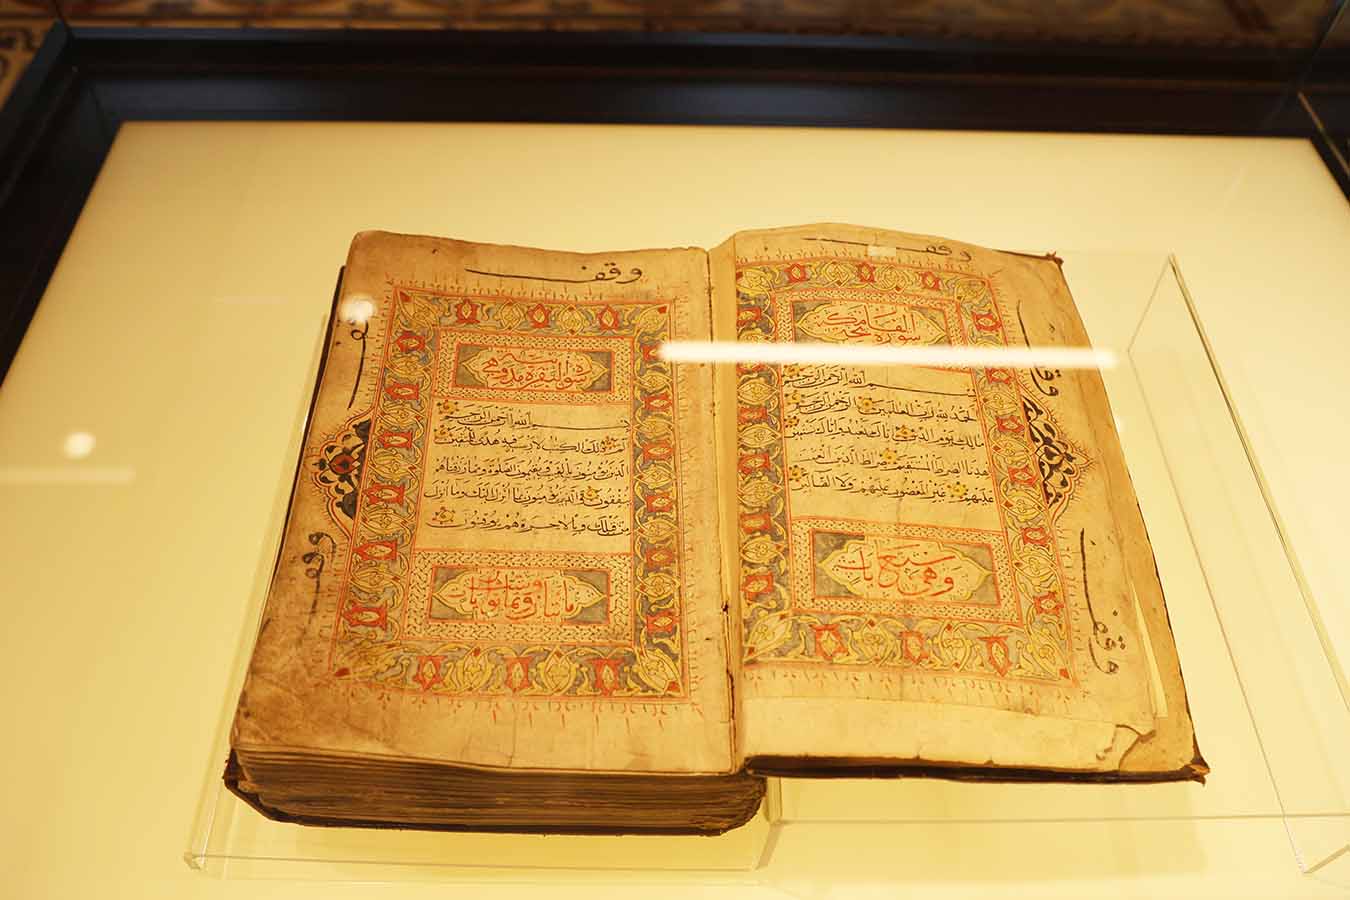 وقف
سورة الفاتحة مكية
بسم الله الرحمن الرحيم
الحمد لله رب العالمين الرحمن الرحيم
مالك يوم الدين اياك نعبد واياك نستعين
اهدنا الصراط المستقيم صراط الذين انعمت
عليهم غير المغضوب عليهم ولا الضالين
وهي سبع ايات
وقف
وقف
وقف
سورة البقرة مدنية وهي
بسم الله الرحمن الرحيم
الم ذلك الكتاب لا ريب فيه هدى للمتقين
الذين يؤمنون بالغيب ويقيمون الصلوة ومما رزقناهم
ينفقون والذين يؤمنون بما انزل اليك وما انزل
من قبلك وبالاخرة هم يوقنون
مائتان وست وثمانون ايات
وقف
وقف